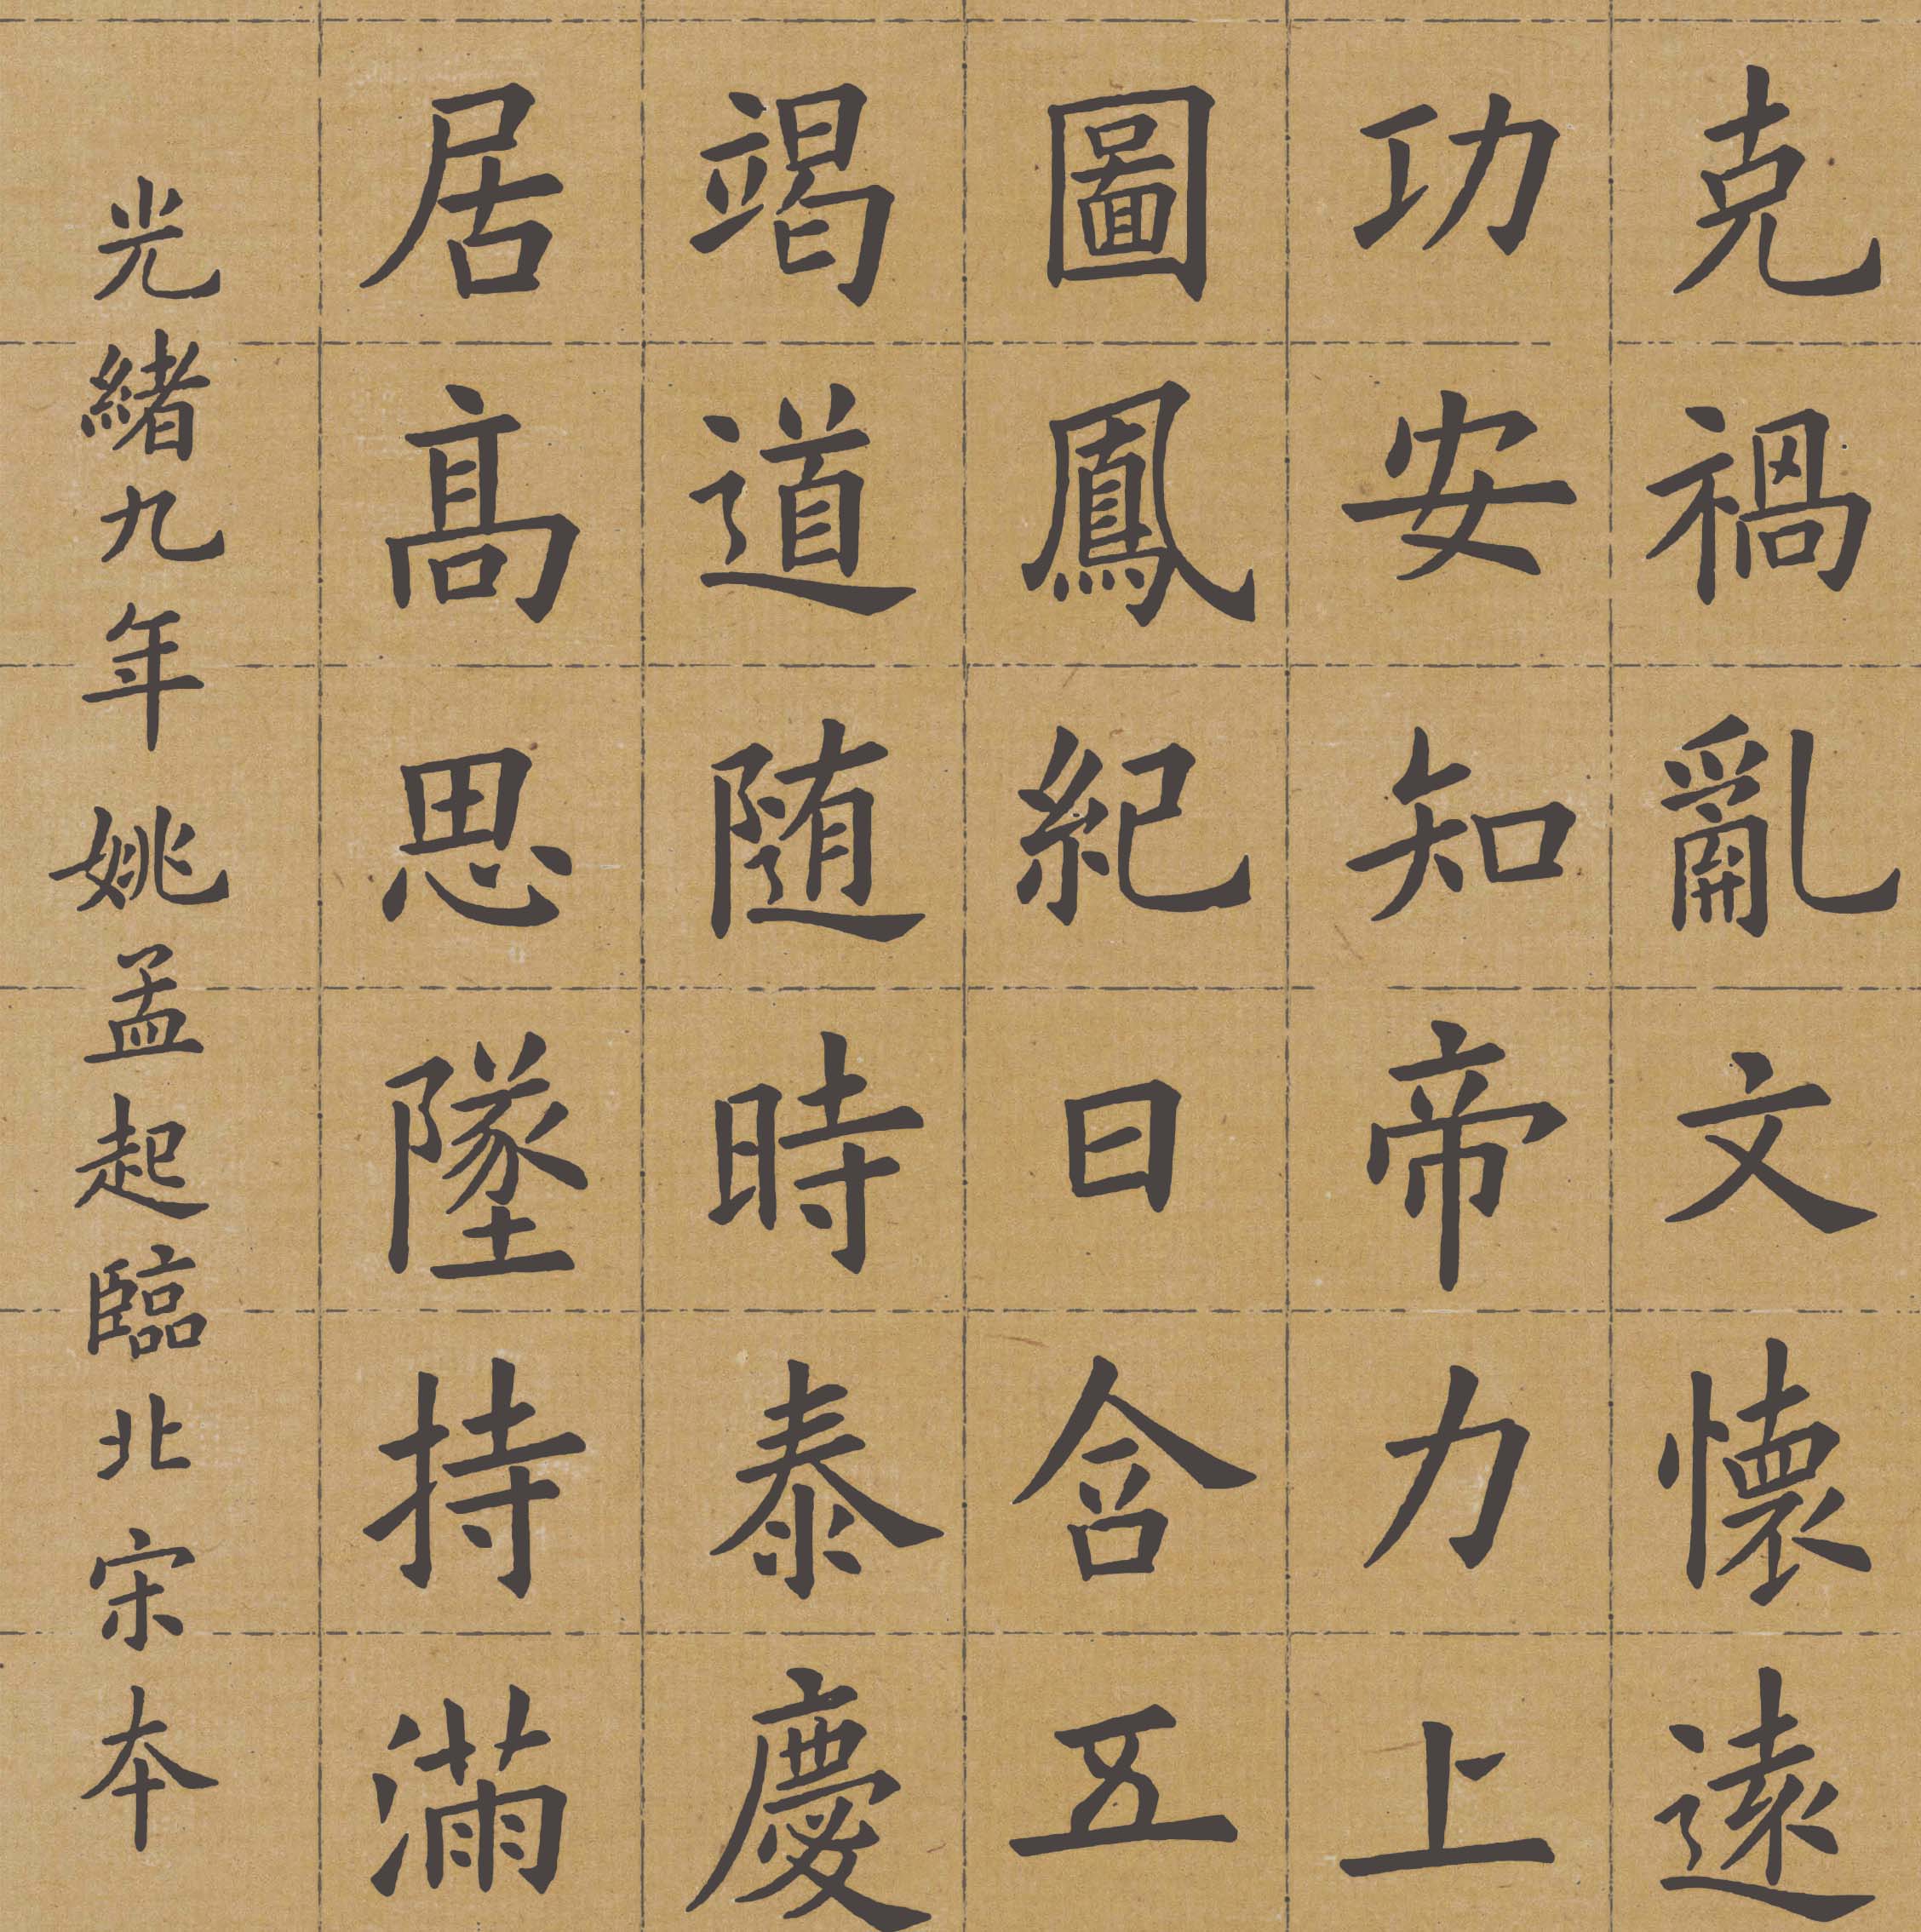 克禍亂文懷遠
功安知帝力上
圖鳳紀日含五
竭道随時泰慶
居高思墜持滿
光緒九年姚孟起臨北宋本